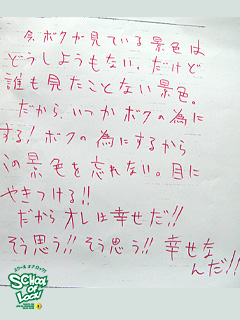 今、ボクが見ている景色は
どうしようもない。だけど
誰も見たことない景色。
だから、いつかボクの為に
する！ボクの為にするから
この景色を忘れない。目に
やきつける!!
だからオレは幸せだ!!
そう思う!! そう思う!! 幸せな
んだ!!
SCHOOL
OF
LOCK!